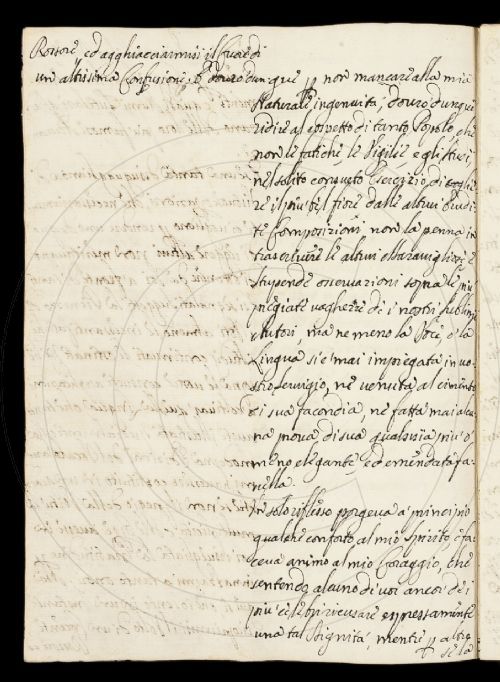 Rossore ed agghiacciarmisi il cuore di
un altissima Confusione, e dovrò dunque p non mancare alla mia
Naturale ingenuità, dovrò dunque
ridire al cospetto di tanto Popolo, che
non le fatiche le Vigilie e gli studi,
nel solito consueto Esercizio, di coglie
re il più bel fiore dalle altrui erudi
te Composizioni non la penna in
trascrivere le altrui Maravigliose e
stupende osservazioni sopra le più
pregiate vaghezze de i nostri sublimi
Autori, ma ne meno la Voce, e la
Lingua si è mai impiegata in vo
stro servigio, nè venuta al cimento
di sua facondia, nè fatta mai alcu
na prova di sua qualsisia più o
meno elegante ed emendata fa
vella.
Un solo riflesso porgeva a principio
qualche conforto al mio spirito, e fa
ceva animo al mio Coraggio, che
sentendo alcuno di voi ancor de i
più celebri ricusare espressamente
una tal Dignità, mentre p altro
se la